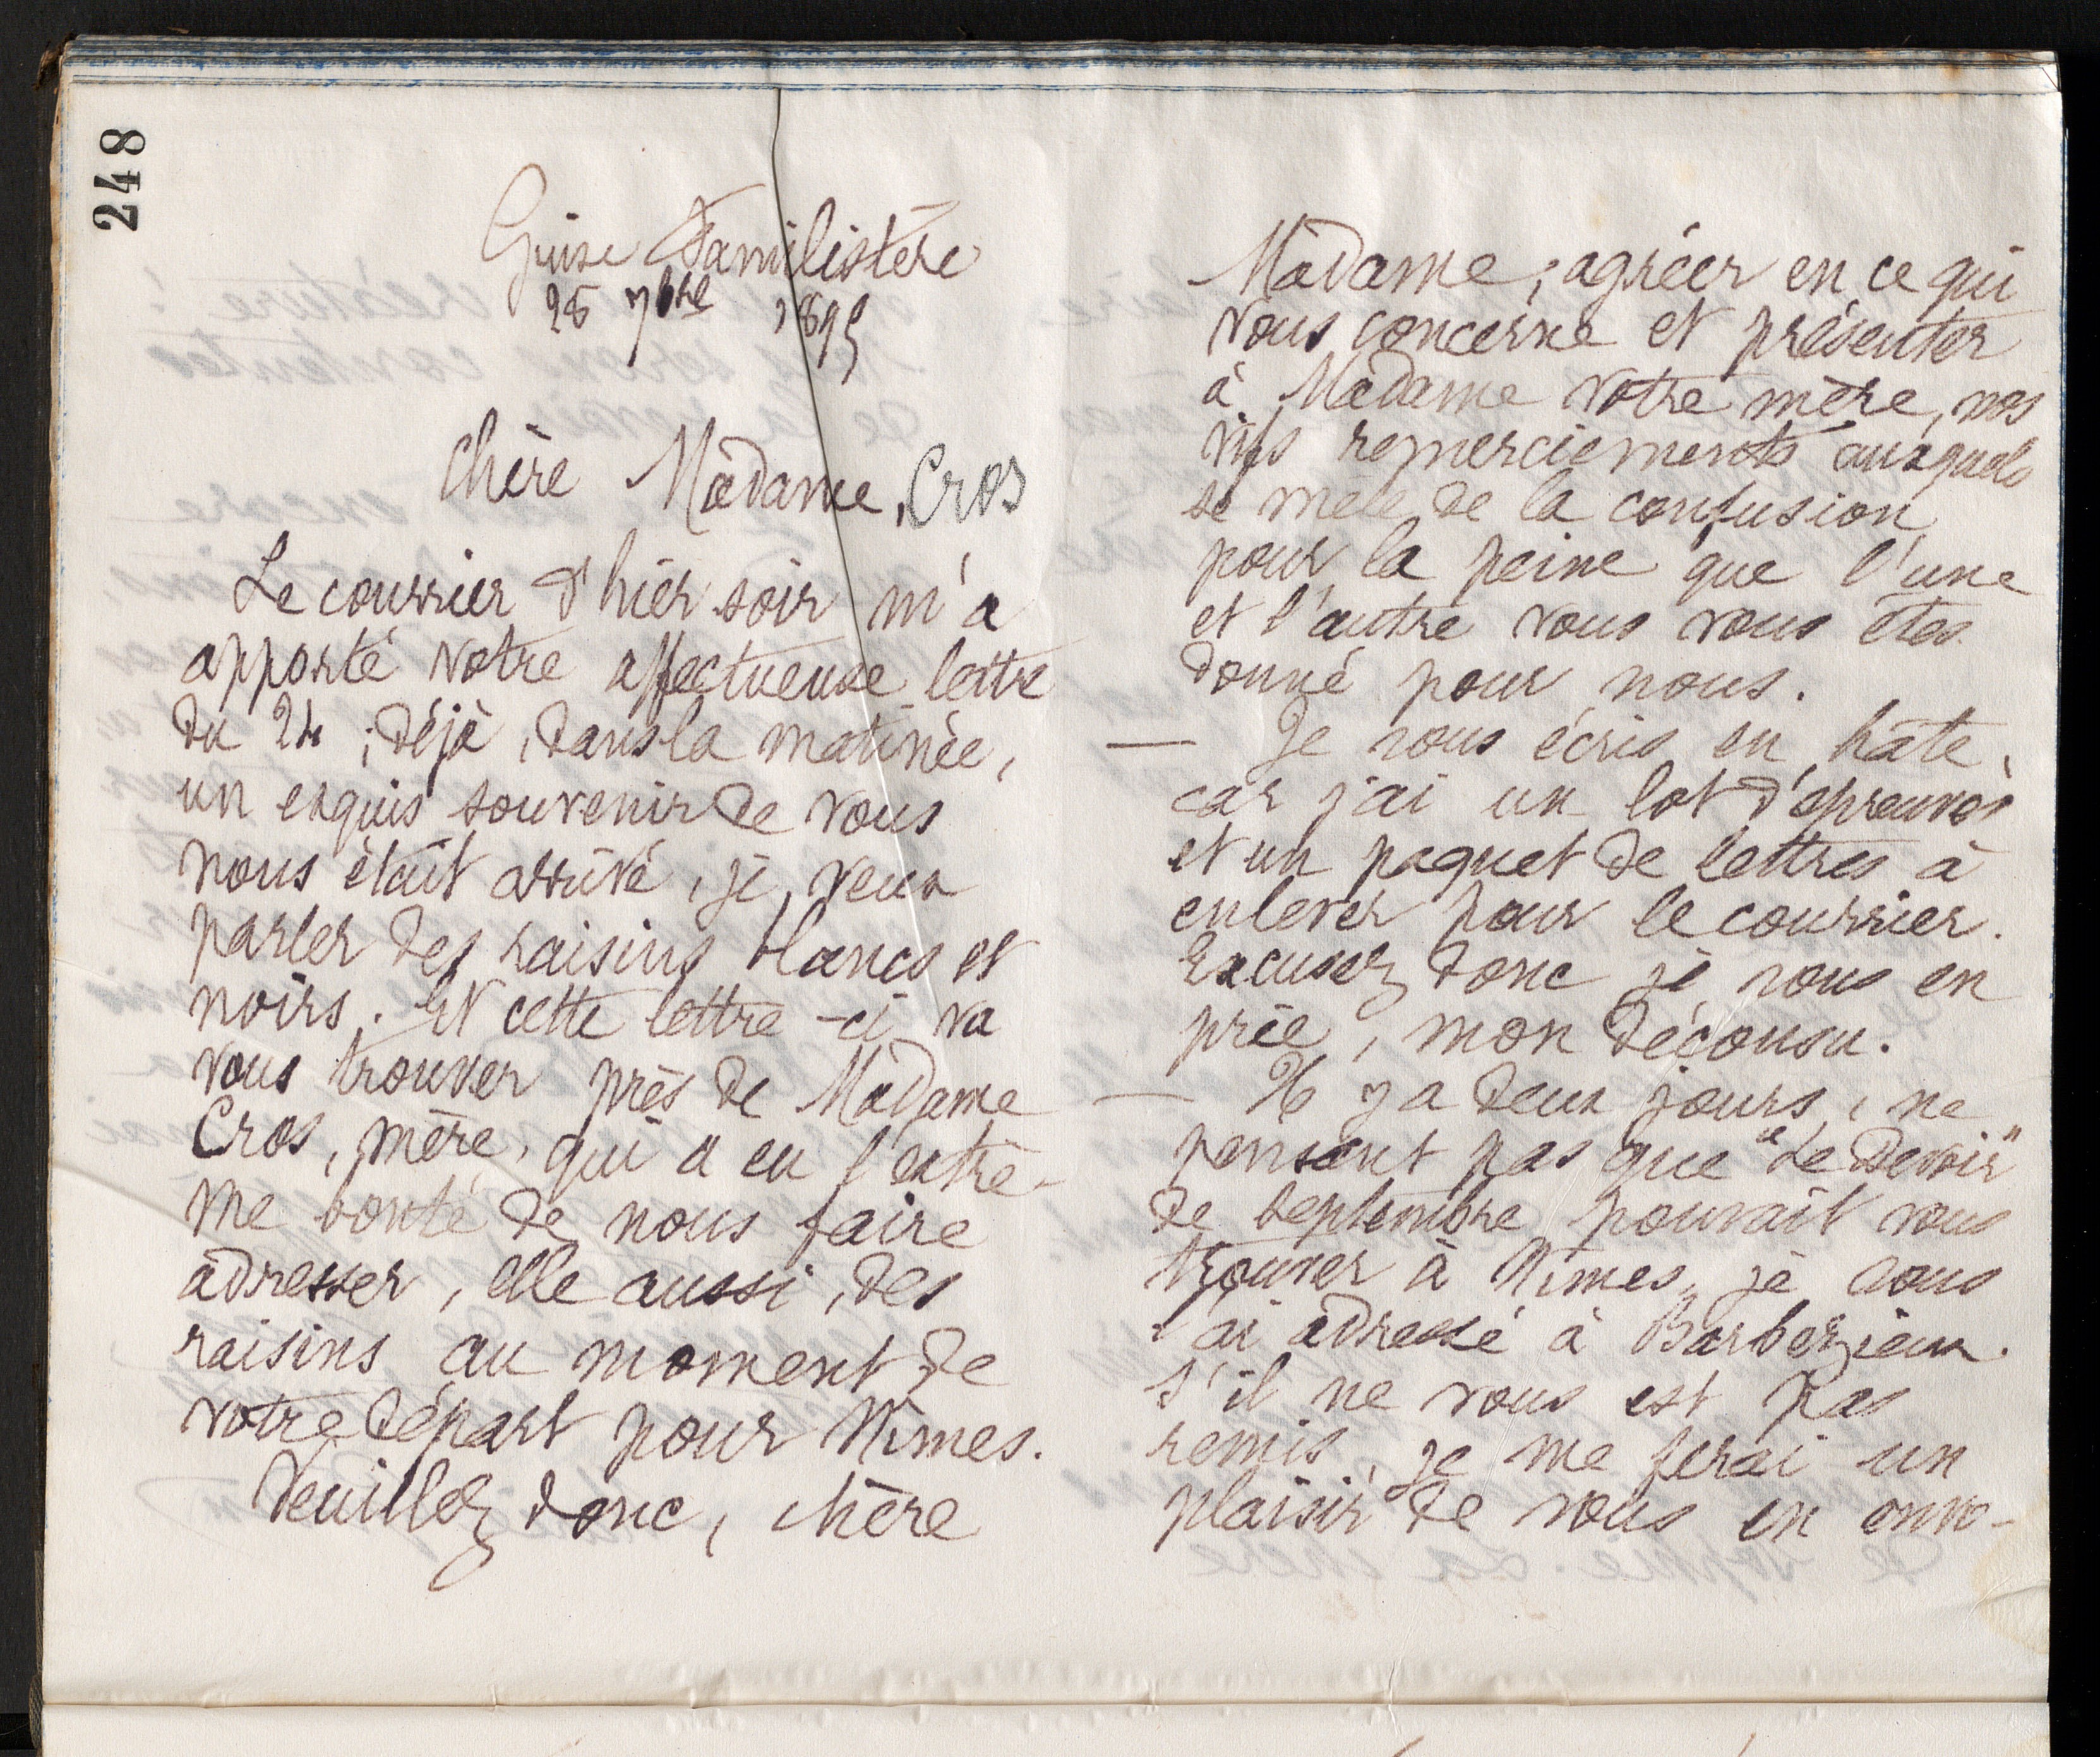 248
Guise Familistère
28 7bre 1895
Chère Madame, Cros
Le courrier d'hier soir m'a
apporté votre affectueuse lettre
du 24 ; déjà, dans la matinée,
un exquis souvenir de vous
nous était arrivé, je veux
parler des raisins blancs et
noirs. Et cette lettre-ci va
vous trouver près de Madame
Cros, mère, qui a eu l'extrê-
me bonté de nous faire
adresser, elle aussi, des
raisins au moment de
votre départ pour Nîmes.
Veuillez donc, chère
Madame, agréer en ce qui
vous concerne et présenter
à Madame votre mère, nos
vifs remerciements auxquels
se mêle de la confusion
pour la peine que l'une
et l'autre vous vous êtes
donné pour nous.
— Je vous écris en hâte,
car j'ai un lot d'épreuves
et un paquet de lettres à
enlever pour le courrier.
Excusez donc je vous en
prie, mon décousu.
— Il y a deux jours, ne
pensant pas que "Le Devoir"
de septembre pouvait vous
trouver à Nîmes, je vous
l'ai adressé à Barbezieux.
S'il ne vous est pas
remis, je me ferai un
plaisir de vous en envo-